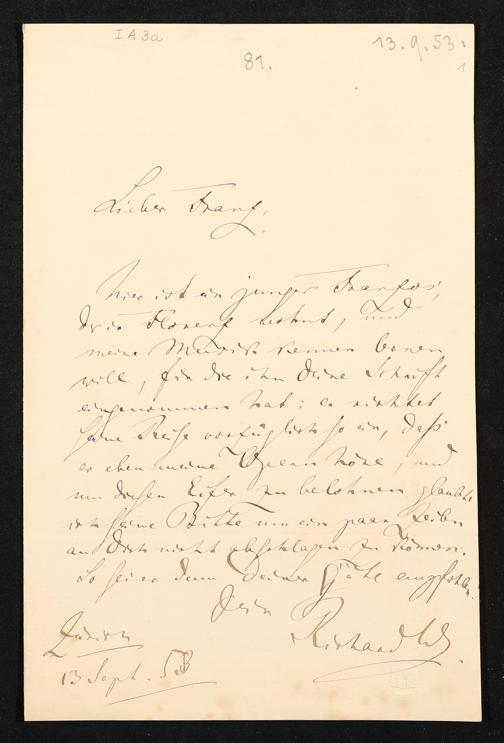 I A 3a
13.9.53.
1
81.
Lieber Franz,
hier ist ein junger Franzos,
der in Florenz wohnt, und
meine Musik kennen lernen
will, für die ihn Deine Schrift
eingenommen hat: er richtet
seine Reise vorzüglich so ein, daß
er eben meine Opern höre, und
um diesen Eifer zu belohnen glaubte
ich seine Bitte um ein paar Zeilen
an Dich nicht abschlagen zu können.
So sei er denn Deiner Güte empfohlen!
Dein
Richard W.
Zürich
13 Sept. 53